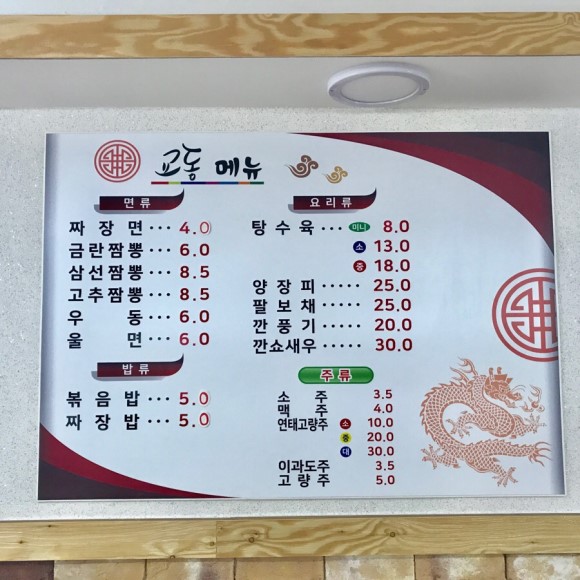 교동 메뉴
면류
짜장면 ··· 4.0
금란짬뽕 ··· 6.0
삼선짬뽕 ··· 8.5
고추짬뽕 ··· 8.5
우동 ··· 6.0
울면 ··· 6.0
밥류
볶음밥 ··· 5.0
짜장밥 ··· 5.0
요리류
탕수육 ··· 미니 8.0
소 13.0
중 18.0
양장피 ····· 25.0
팔보채 ····· 25.0
깐풍기 ····· 20.0
깐쇼새우 ···· 30.0
주류
소주 3.5
맥주 4.0
연태고량주 소 10.0
중 20.0
대 30.0
이과도주 3.5
고량주 5.0